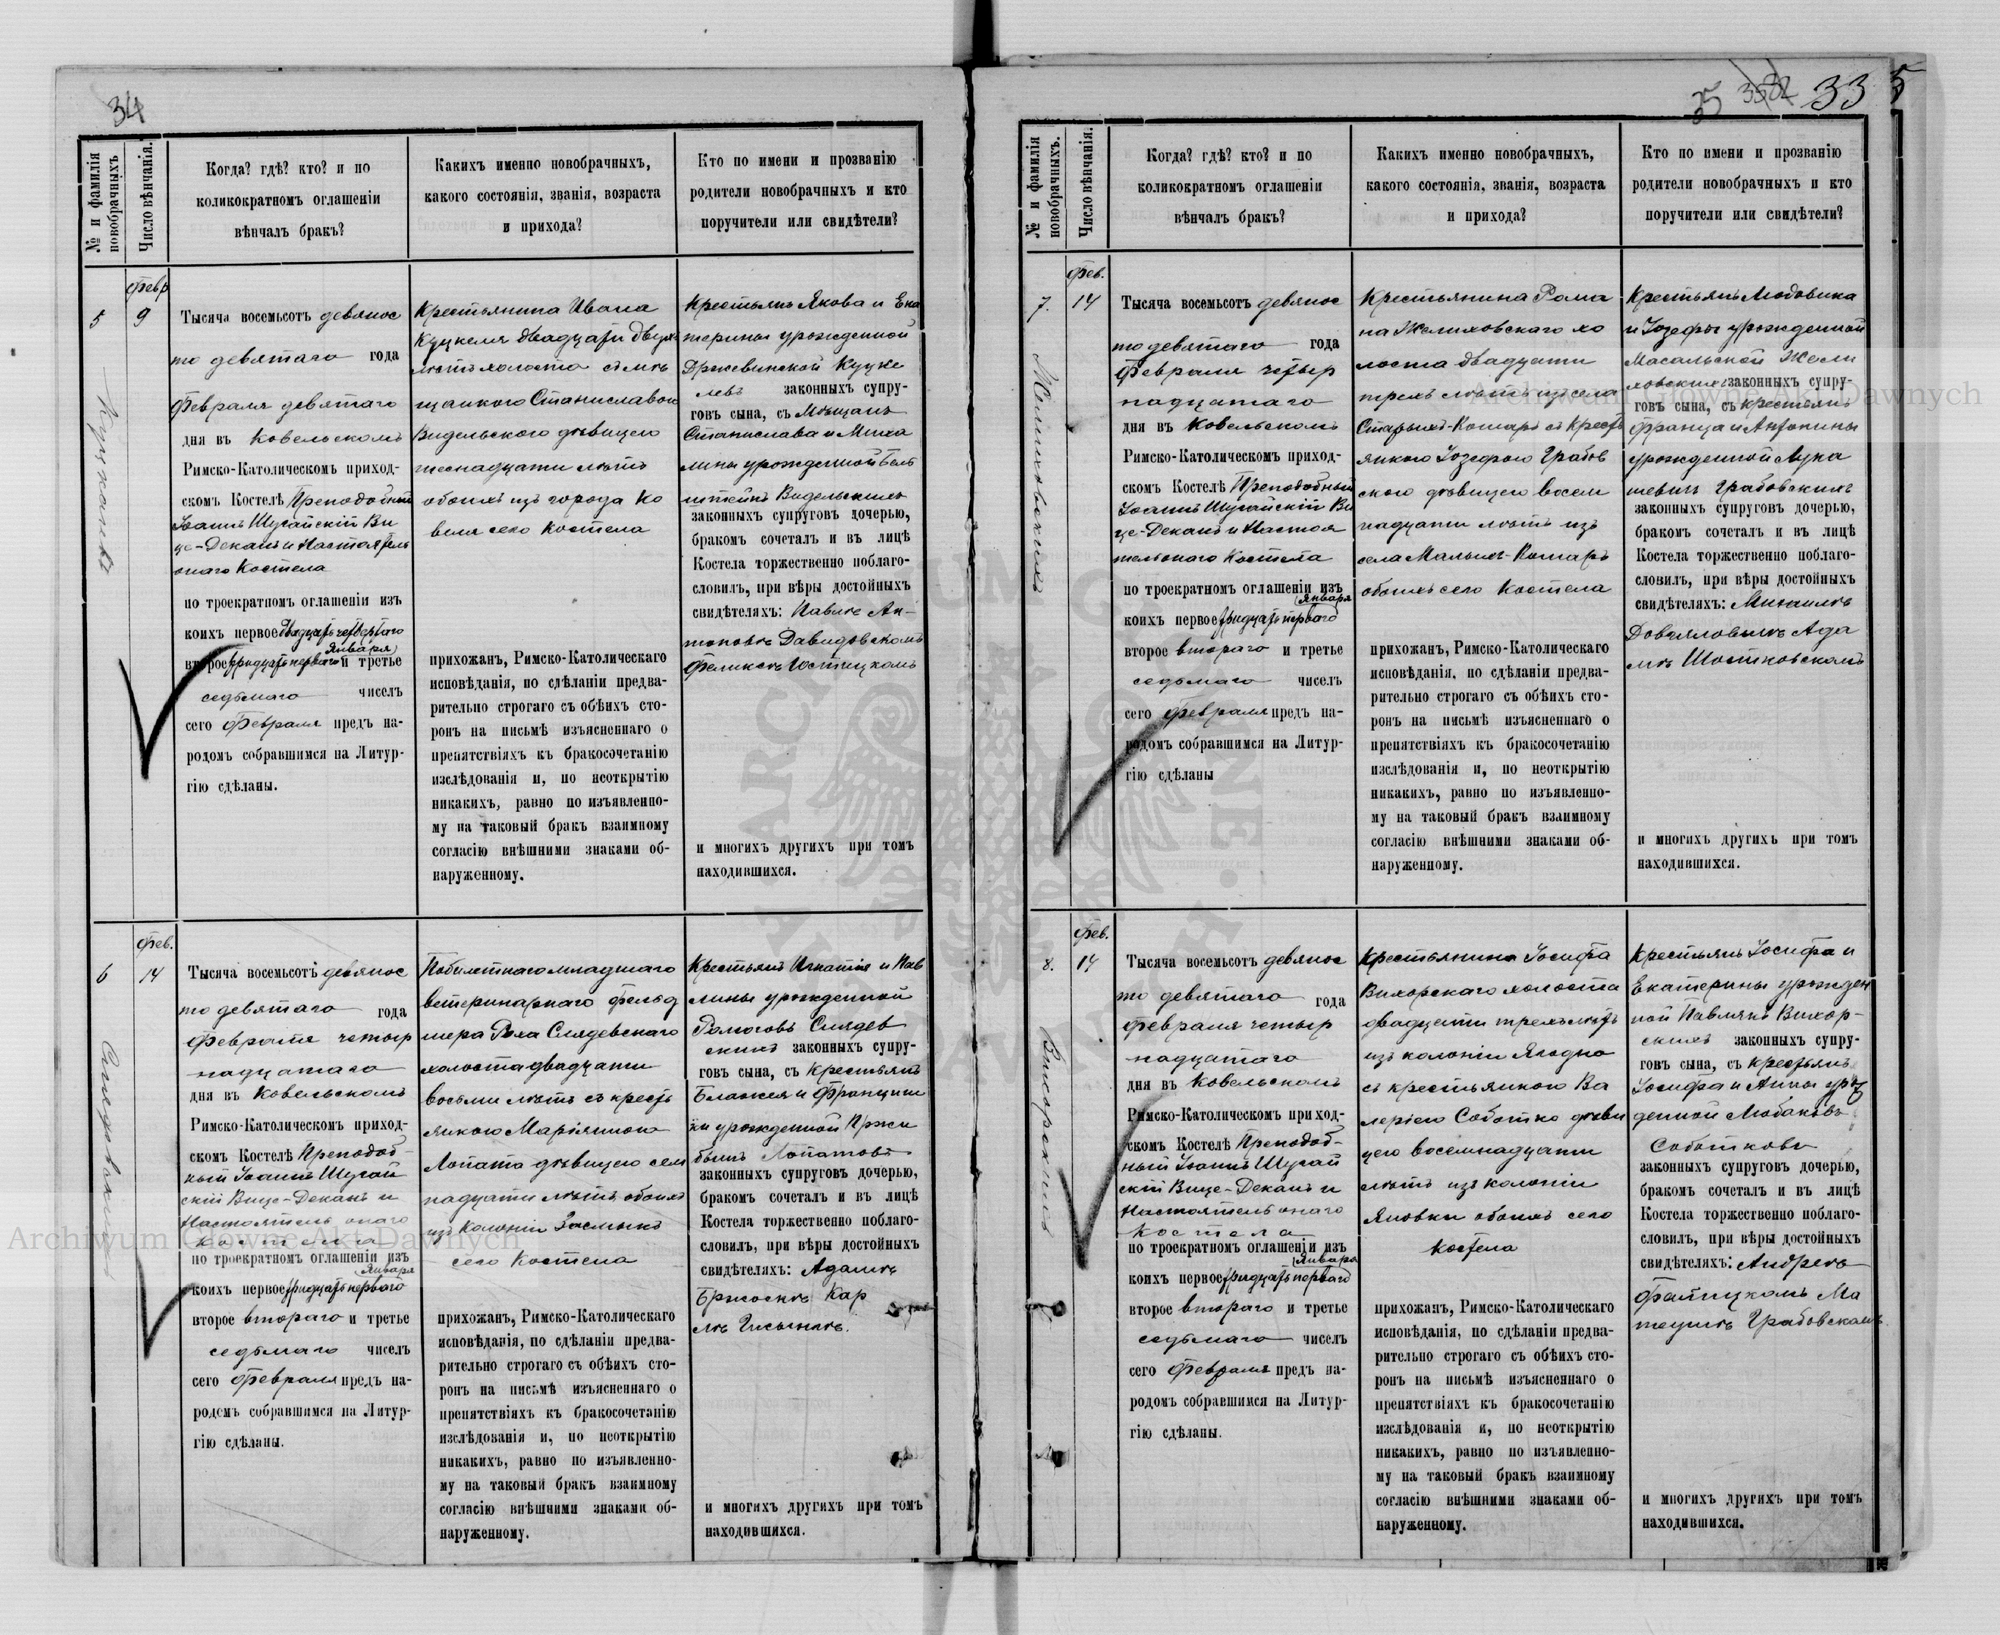 34
№ и фамилія новобрачныхъ
Число вѣнчанія.
Когда? гдѣ? кто? и по
коликократномъ оглашеніи
вѣнчалъ бракъ?
Какихъ именно новобрачныхъ,
какого состоянія, званія, возраста
и прихода?
Кто по имени и прозванію
родители новобрачныхъ и кто
поручители или свидѣтели?
5
Февр
9
Тысяча восемьсотъ девянос
то девятаго года
Февраля девятаго
дня въ Ковельскомъ
Римско-Католическомъ приход-
скомъ Костелѣ Преподобный
Іоаннъ Шугайскій Ви
це-Деканъ и Настоятель
онаго Костела
по троекратномъ оглашеніи изъ
коихъ первое двадцать четвертаго
Января
второе тридцать перваго и третье
седьмаго чиселъ
сего Февраля предъ на-
родомъ собравшимся на Литур-
гію сдѣланы.
Крестьянина Ивана
Куцкеля двадцати двухъ
лѣтъ холоста съ мѣ
щанкою Станиславою
Видельскою дѣвицею
шеснадцати лѣтъ
обоихъ изъ города Ко
веля сего Костела
прихожанъ, Римско-Католическаго
исповѣданія, по сдѣланіи предва-
рительно строгаго съ обѣихъ сто-
ронъ на письмѣ изъясненнаго о
препятствіяхъ къ бракосочетанію
изслѣдованія и, по неоткрытію
никакихъ, равно по изъявленно-
му на таковый бракъ взаимному
согласію внѣшними знаками об-
наруженному.
Крестьянъ Якова и Ека
терины урожденной
Држевинской Куцке
левъ законныхъ супру-
говъ сына, съ Мѣщанъ
Станислава и Миха
лины урожденной
Видельскихъ
законныхъ супруговъ дочерью,
бракомъ сочеталъ и въ лицѣ
Костела торжественно поблаго-
словилъ, при вѣры достойныхъ
свидѣтеляхъ: Павлѣ Ан-
тоновѣ Давидовскомъ
Феликсѣ
и многихъ другихъ при томъ
находившихся.
6
Фев.
14
Тысяча восемьсотъ девянос
то девятаго года
Февраля четыр
надцатаго
дня въ Ковельскомъ
Римско-Католическомъ приход-
скомъ Костелѣ Преподоб-
ный Іоаннъ Шугай
скій Вице-Деканъ и
Настоятель онаго
Костела
по троекратномъ оглашеніи изъ
Января
коихъ первое тридцать перваго
второе втораго и третье
седьмаго чиселъ
сего Февраля предъ на-
родомъ собравшимся на Литур-
гію сдѣланы.
Побилетнаго младшаго
ветеринарнаго фельд
шера Роха Слядевскаго
холоста двадцати
восьми лѣтъ съ кресть
янкою Марьянною
Лопата дѣвицею сем
надцати лѣтъ обоихъ
изъ Колоніи Засмыкъ
сего Костела
прихожанъ, Римско-Католическаго
исповѣданія, по сдѣланіи предва-
рительно строгаго съ обѣихъ сто-
ронъ на письмѣ изъясненнаго о
препятствіяхъ къ бракосочетанію
изслѣдованія и, по неоткрытію
никакихъ, равно по изъявленно-
му на таковый бракъ взаимному
согласію внѣшними знаками об-
наруженному.
Крестьянъ Игнатія и Пав
лины урожденной
Слядев
скихъ законныхъ супру-
говъ сына, съ Крестьянъ
Блажея и Францишки
урожденной Пржи
былъ Лопатовъ
законныхъ супруговъ дочерью,
бракомъ сочеталъ и въ лицѣ
Костела торжественно поблаго-
словилъ, при вѣры достойныхъ
свидѣтеляхъ: Адамѣ
Бржоскѣ Кар
лѣ
и многихъ другихъ при томъ
находившихся.
35 33 5
№ и фамилія новобрачныхъ.
Число вѣнчанія.
Когда? гдѣ? кто? и по
коликократномъ оглашеніи
вѣнчалъ бракъ?
Какихъ именно новобрачныхъ,
какого состоянія, званія, возраста
и прихода?
Кто по имени и прозванію
родители новобрачныхъ и кто
поручители или свидѣтели?
7.
Фев.
14
Тысяча восемьсотъ девянос
то девятаго года
Февраля четыр
надцатаго
дня въ Ковельскомъ
Римско-Католическомъ приход-
скомъ Костелѣ Преподобный
Іоаннъ Шугайскій Ви
це-Деканъ и Настоя
тель онаго Костела
по троекратномъ оглашеніи изъ
Января
коихъ первое тридцать перваго
второе втораго и третье
седьмаго чиселъ
сего Февраля предъ на-
родомъ собравшимся на Литур-
гію сдѣланы
Крестьянина Рома
на Желиховскаго хо
лоста двадцати
трехъ лѣтъ изъ села
Старыхъ-Кошаръ съ Кресть
янкою Іозефою Грабов
скою дѣвицею восем
надцати лѣтъ изъ
села Малыхъ-Кошаръ
обоихъ сего Костела
прихожанъ, Римско-Католическаго
исповѣданія, по сдѣланіи предва-
рительно строгаго съ обѣихъ сто-
ронъ на письмѣ изъясненнаго о
препятствіяхъ къ бракосочетанію
изслѣдованія и, по неоткрытію
никакихъ, равно по изъявленно-
му на таковый бракъ взаимному
согласію внѣшними знаками об-
наруженному.
Крестьянъ Людовика
и Іозефы урожденной
Масальской Жели
ховскихъ законныхъ супру-
говъ сына, съ крестьянъ
Франца и Антонины
урожденной Лука
шевичъ Грабовскихъ
законныхъ супруговъ дочерью,
бракомъ сочеталъ и въ лицѣ
Костела торжественно поблаго-
словилъ, при вѣры достойныхъ
свидѣтеляхъ: Михаилѣ
Довяловичѣ Ада
мѣ Шостковскомъ
и многихъ другихъ при томъ
находившихся.
8.
Фев.
14
Тысяча восемьсотъ девянос
то девятаго года
Февраля четыр
надцатаго
дня въ Ковельскомъ
Римско-Католическомъ приход-
скомъ Костелѣ Преподоб-
ный Іоаннъ Шугай
скій Вице-Деканъ и
Настоятель онаго
Костела
по троекратномъ оглашеніи изъ
Января
коихъ первое тридцать перваго
второе втораго и третье
седьмаго чиселъ
сего Февраля предъ на-
родомъ собравшимся на Литур-
гію сдѣланы.
Крестьянина Іосифа
Вихорскаго холоста
двадцати трехъ лѣтъ
изъ колоніи Ягодно
съ крестьянкою Ва
леріею Соботко дѣви
цею восемнадцати
лѣтъ изъ колоніи
Яновки обоихъ сего
Костела
прихожанъ, Римско-Католическаго
исповѣданія, по сдѣланіи предва-
рительно строгаго съ обѣихъ сто-
ронъ на письмѣ изъясненнаго о
препятствіяхъ къ бракосочетанію
изслѣдованія и, по неоткрытію
никакихъ, равно по изъявленно-
му на таковый бракъ взаимному
согласію внѣшними знаками об-
наруженному.
Крестьянъ Іосифа и
Екатерины урожден
ной Павлякъ Вихор-
скихъ законныхъ супру-
говъ сына, съ крестьянъ
Іосифа и Анны урож
денной Любаковъ
Соботковъ
законныхъ супруговъ дочерью,
бракомъ сочеталъ и въ лицѣ
Костела торжественно поблаго-
словилъ, при вѣры достойныхъ
свидѣтеляхъ: Андреѣ
Фалицкомъ Ма
теушѣ Грабовскомъ
и многихъ другихъ при томъ
находившихся.
Archiwum Główne Akt Dawnych
Archiwum Główne Akt Dawnych